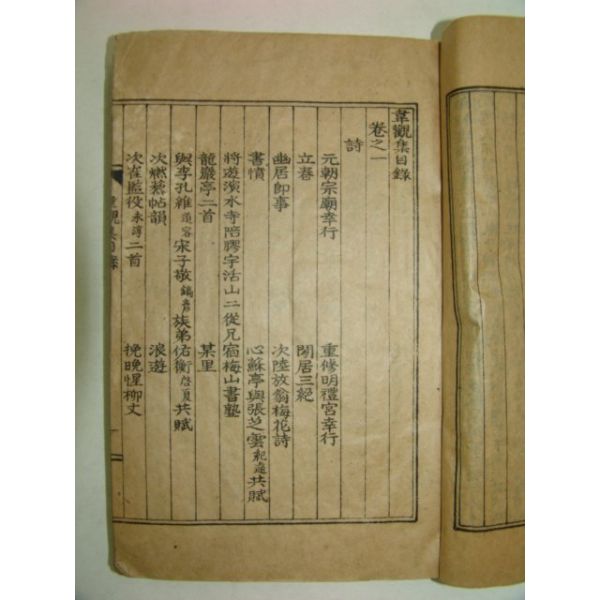 韋觀集目錄
卷之一
詩
元朝宗廟幸行 重修明禮宮幸行
立春 閑居三絕
幽居卽事 次陸放翁梅花詩
書憤 心蘇亭與張芝雲紀遠共賦
將遊演水寺陪膠宇活山二從兄宿梅山書塾
龍巖亭二首 某里
與李孔維宋子敬族弟佑衡啓夏共賦
次燃藜帖韻 浪遊
次崔監役二首 挽晩惺柳丈
韋觀集目錄